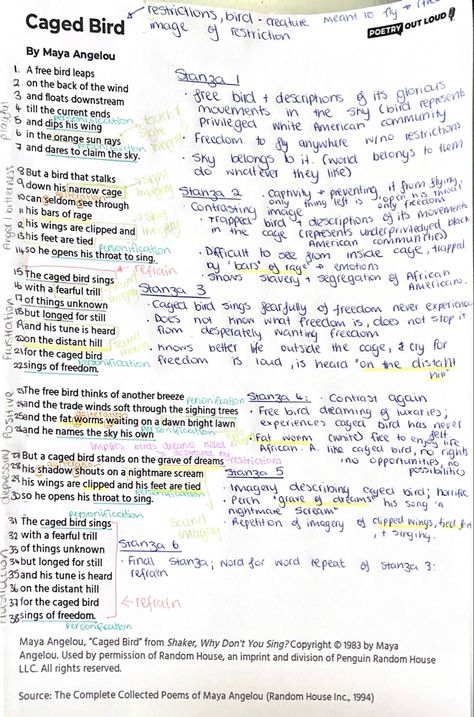 Caged Bird
restrictions, bird - creature meant to fly
image of restriction
POETRY OUT LOUD
By Maya Angelou
1. A free bird leaps
2 on the back of the wind
3 and floats downstream
4 till the current ends
personification
5 and dips his wing
6 in the orange sun rays
personification
7 and dares to claim the sky.
Playful
Stanza 1
• free bird + descriptions of its glorious
movements in the sky (bird represents
privileged white American community)
• Freedom to fly anywhere w/no restrictions
• Sky belongs to it. (world belongs to them
do whatever they like)
8 But a bird that stalks
9 down his narrow cage
10 can seldom see through
11 his bars of rage
12 his wings are clipped and
13 his feet are tied
personification
14 so he opens his throat to sing.
Anger / bitterness
Stanza 2
• captivity + preventing it from flying,
only thing left is to open his mouth
• Contrasting image of freedom
• trapped bird + descriptions of its movements
in the cage (represents underprivileged black
American communities)
• Difficult to see from inside cage, trapped
by "bars of rage" → emotions
• shows slavery + segregation of African
Americans.
← refrain
15 The caged bird sings
16 with a fearful trill
17 of things unknown
18 but longed for still
19 and his tune is heard
20 on the distant hill
21 for the caged bird
22 sings of freedom.
Frustration
sound imagery
Stanza 3
• Caged bird sings fearfully of freedom never experienced
• Does not know what freedom is, does not stop it
from desperately wanting freedom
• Knows better life outside the cage, & cry for
freedom is loud, is heard "on the distant
hill"
23 The free bird thinks of another breeze
personification
24 and the trade winds soft through the sighing trees
alliteration
25 and the fat worms waiting on a dawn bright lawn
26 and he names the sky his own
personification
Positive
Stanza 4:
• Contrast again
• Free bird dreaming of luxuries;
experiences caged bird has never
felt
• Fat worm (white) free to enjoy life
African. A. like caged bird, no rights
no opportunities, no
possibilities
implies birds dreams killed
+ destroyed by
restrictions
27 But a caged bird stands on the grave of dreams
28 his shadow shouts on a nightmare scream
29 his wings are clipped and his feet are tied
personification
30 so he opens his throat to sing.
depressing
Stanza 5
• Imagery describing caged bird; horrific
• Perch "grave of dreams" his song "a
nightmare scream"
• Repetition of imagery of clipped wings, tied feet
+ singing.
personification
31 The caged bird sings
32 with a fearful trill
33 of things unknown
34 but longed for still
35 and his tune is heard
36 on the distant hill
37 for the caged bird
38 sings of freedom.
personification
sound imagery
← refrain
Frustration
Stanza 6
• Final Stanza; word for word repeat of stanza 3:
refrain
Maya Angelou, "Caged Bird" from Shaker, Why Don't You Sing? Copyright © 1983 by Maya
Angelou. Used by permission of Random House, an imprint and division of Penguin Random House
LLC. All rights reserved.
Source: The Complete Collected Poems of Maya Angelou (Random House Inc., 1994)